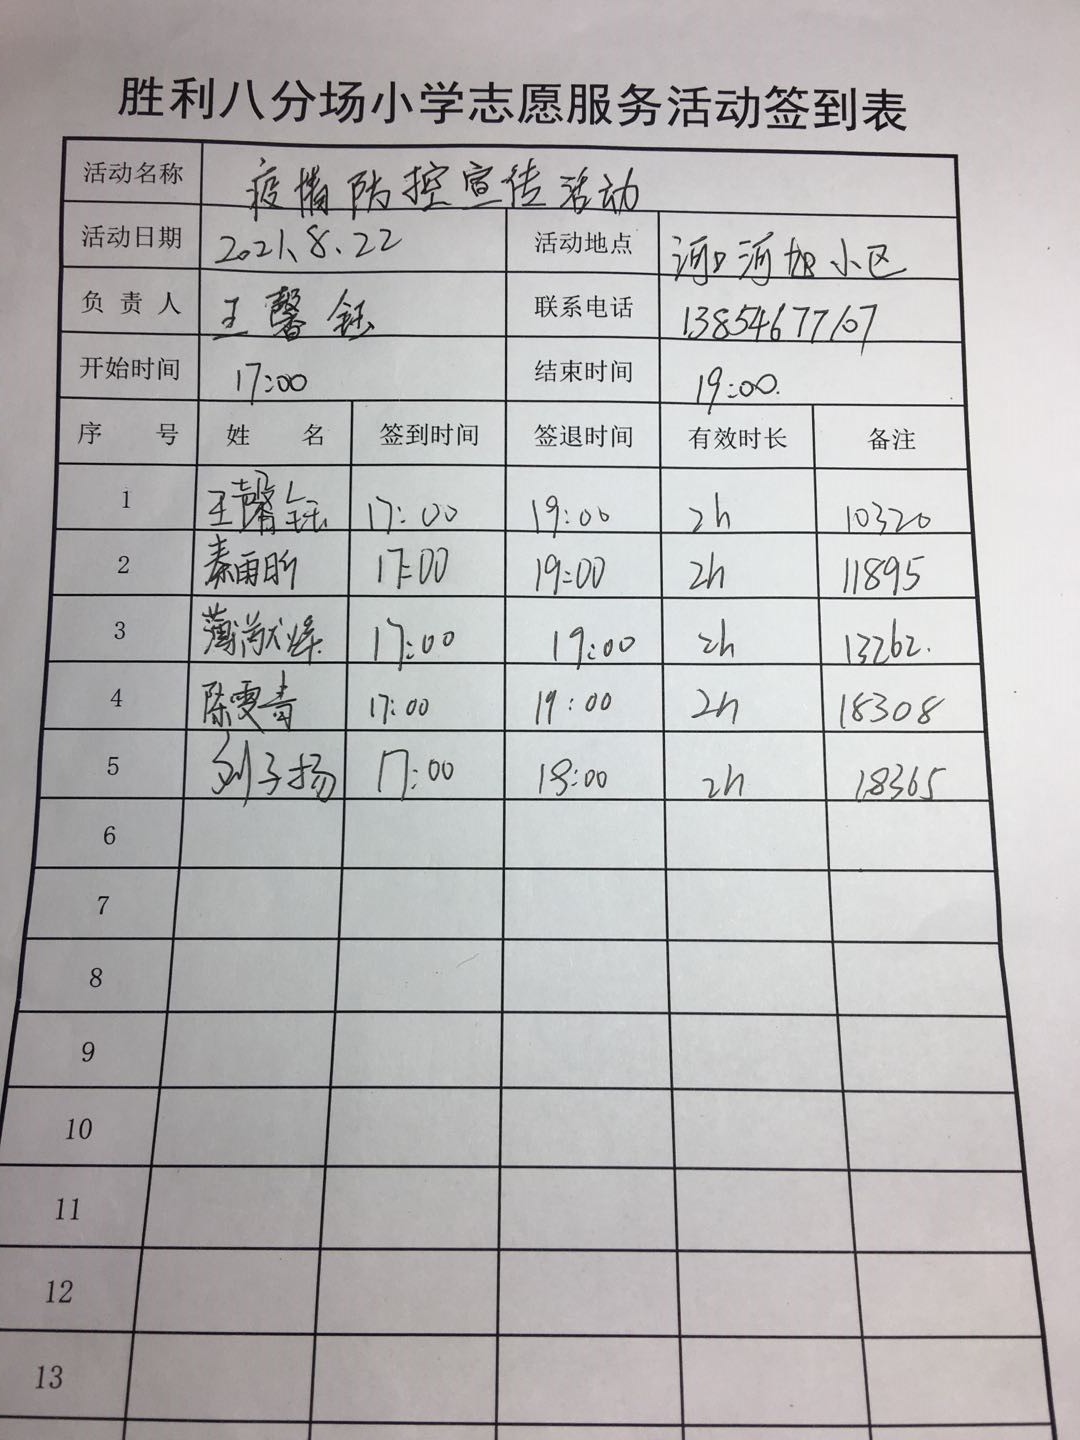 胜利八分场小学志愿服务活动签到表
活动名称 疫情防控宣传活动
活动日期 2021.8.22 活动地点 河口河旭小区
负责人 王馨钰 联系电话 13854677107
开始时间 17:00 结束时间 19:00.
序号 姓名 签到时间 签退时间 有效时长 备注
1 王馨钰 17:00 19:00 2h 10320
2 秦雨昕 17:00 19:00 2h 11895
3 薄 17:00 19:00 2h 13262.
4 陈雯青 17:00 19:00 2h 18308
5 刘子扬 17:00 19:00 2h 18365
6
7
8
9
10
11
12
13